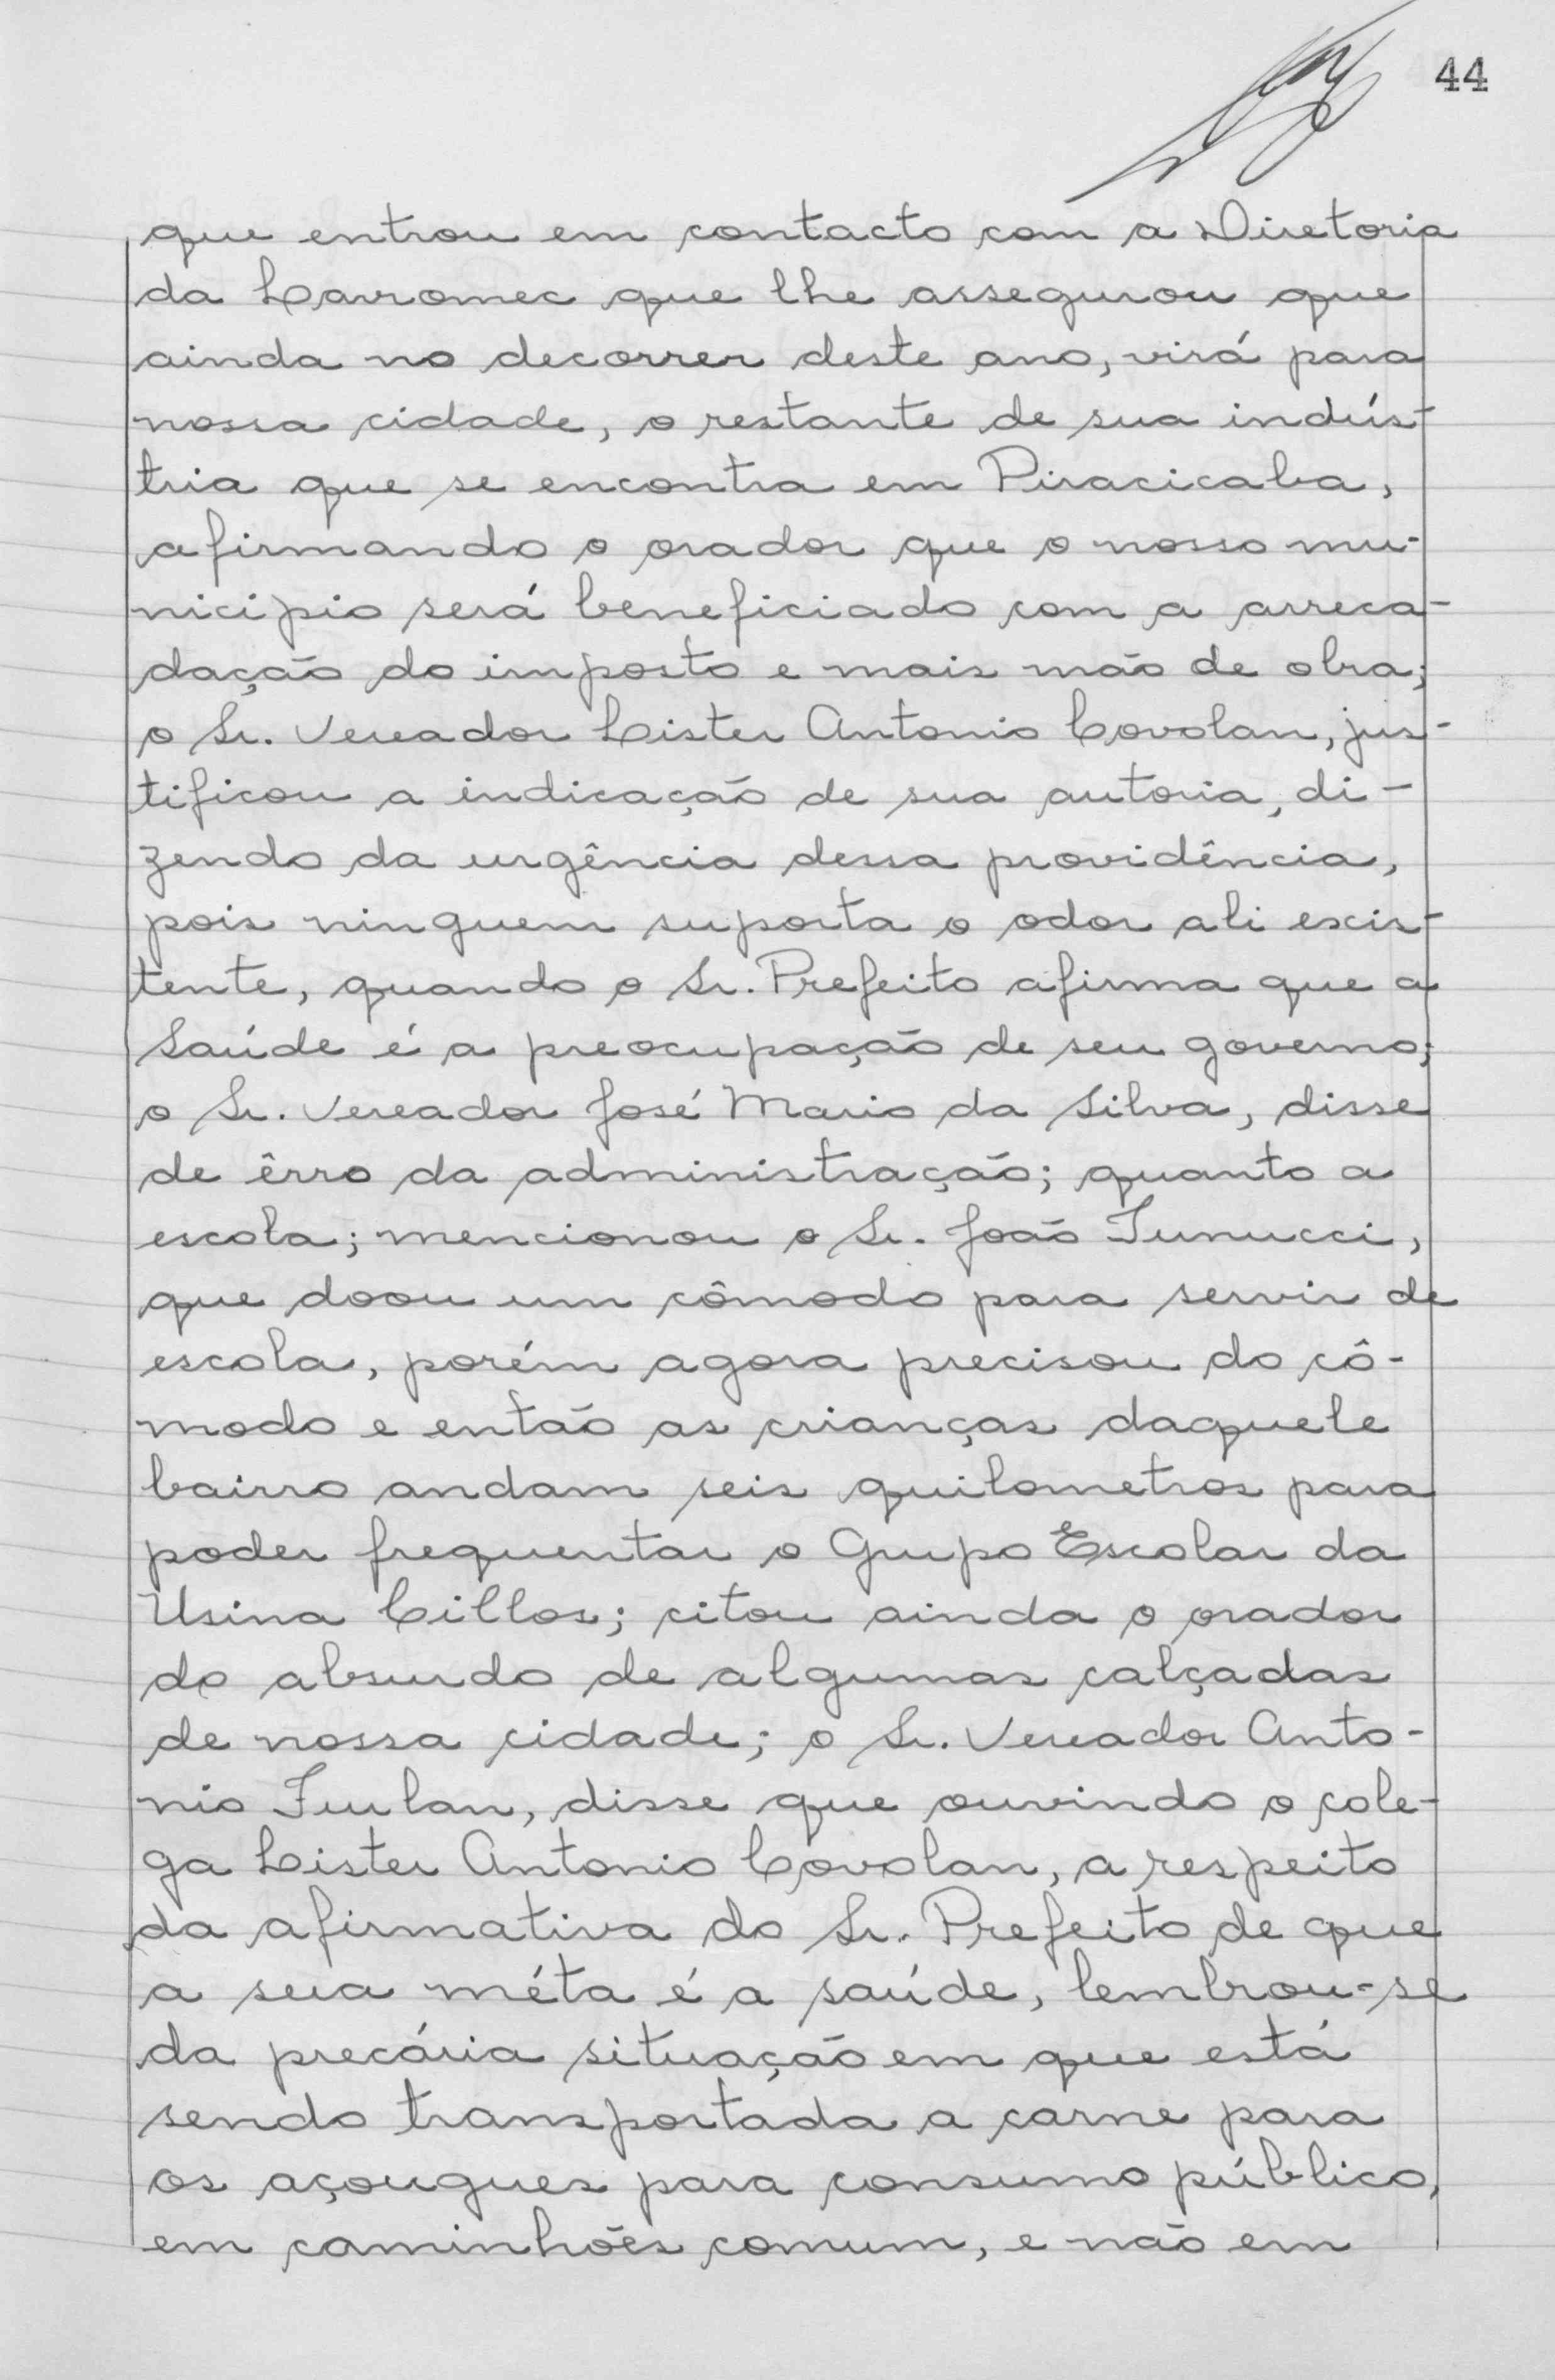 44
que entrou em contacto com a Diretoria
da Lavromec que lhe assegurou que
ainda no decorrer deste ano, virá para
nossa cidade, o restante de sua indús-
tria que se encontra em Piracicaba,
afirmando o orador que o nosso mu-
nicipio será beneficiado com a arreca-
dação do imposto e mais mão de obra;
o Sr. Vereador Lister Antonio Covolan, jus-
tificou a indicação de sua autoria, di-
zendo da urgência dessa providência,
pois ninguem suporta o odor ali exis-
tente, quando o Sr. Prefeito afirma que a
Saúde é a preocupação de seu governo;
o Sr. Vereador José Mario da Silva, disse
de êrro da administração; quanto a
escola; mencionou o Sr. João
que doou um cômodo para servir de
escola, porém agora precisou do cô-
modo e então as crianças daquele
bairro andam seis quilometros para
poder frequentar o Grupo Escolar da
Usina Cillos; citou ainda o orador
do absurdo de algumas calçadas
de nossa cidade; o Sr. Vereador Anto-
nio Furlan, disse que ouvindo o cole-
ga Lister Antonio Covolan, a respeito
da afirmativa do Sr. Prefeito de que
a sua méta é a saúde, lembrou-se
da precária situação em que está
sendo transportada a carne para
os açougues para consumo público,
em caminhões comum, e não em